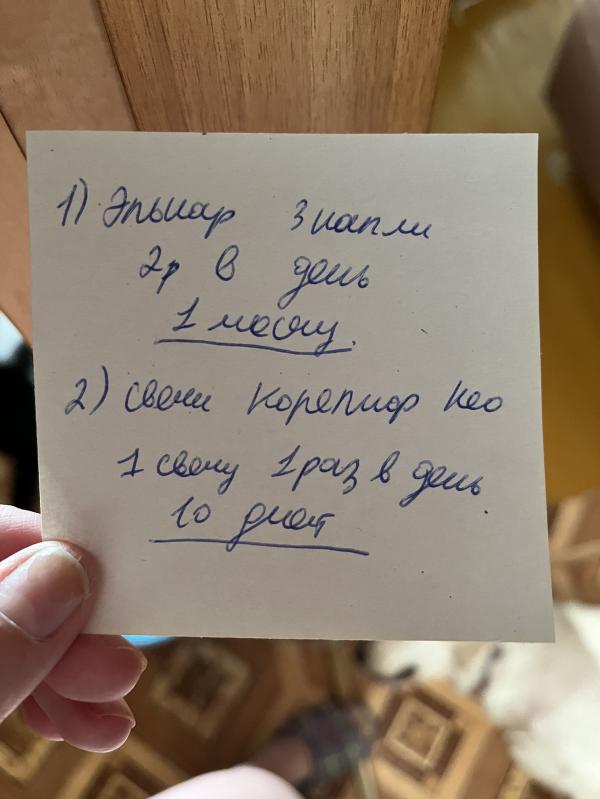 1) Элькар 3 капли
2р в день
1 месяц.
2) свечи Корепиор Кео
1 свечу 1 раз в день
10 дней